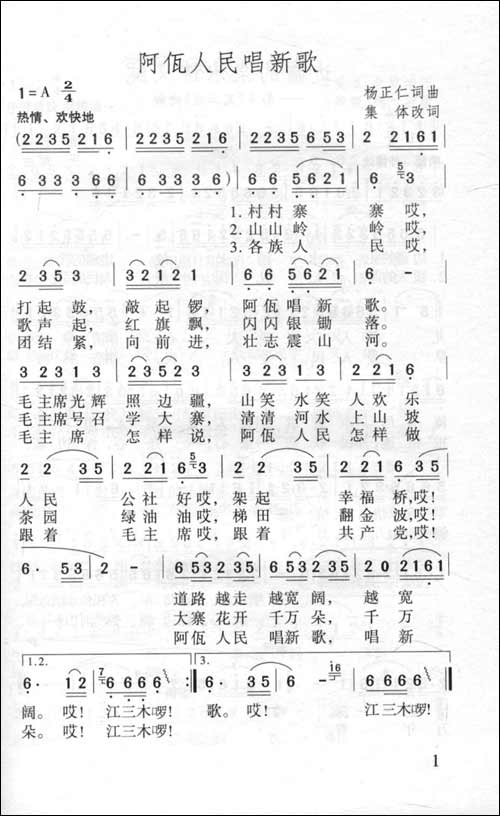 阿佤人民唱新歌
1=A 2/4
杨正仁词曲
热情、欢快地
集 体改词
(2235 216 | 2235 216 | 2235 653 | 2 2161 |
6 333 366 | 6333 6) | 66 5621 | 6 5 3 |
1.村村寨 寨哎,
2.山山岭 岭哎,
3.各族人 民哎,
2 353 | 32121 | 66 5621 | 6 - |
打起鼓, 敲起锣, 阿佤唱新歌。
歌声起, 红旗飘, 闪闪银锄落。
团结紧, 向前进, 壮志震山河。
323 13 | 3213 | 2313 | 2216 |
毛主席光辉 照边疆, 山笑水笑 人欢乐
毛主席号召 学大寨, 清清河水 上山坡
毛主席 怎样说, 阿佤人民 怎样做
22 35 | 221 6 5 3 | 22 35 | 2216 |
人民 公社好哎, 架起 幸福桥,哎!
茶园 绿油油哎, 梯田 翻金波,哎!
跟着 毛主席哎, 跟着 共产党,哎!
6· 53 | 2 - | 6535 | 6532 | 202 | 2161 |
道路越走 越宽阔, 越宽
大寨花开 千万朵, 千万
阿佤人民 唱新歌, 唱新
1.2.
3.
6· 12 | 7 6666 :| 6· 35 | 6 - 16 | 6666 ‖
阔。哎! 江三木啰! 歌。哎! 江三木啰!
朵。哎! 江三木啰!
1